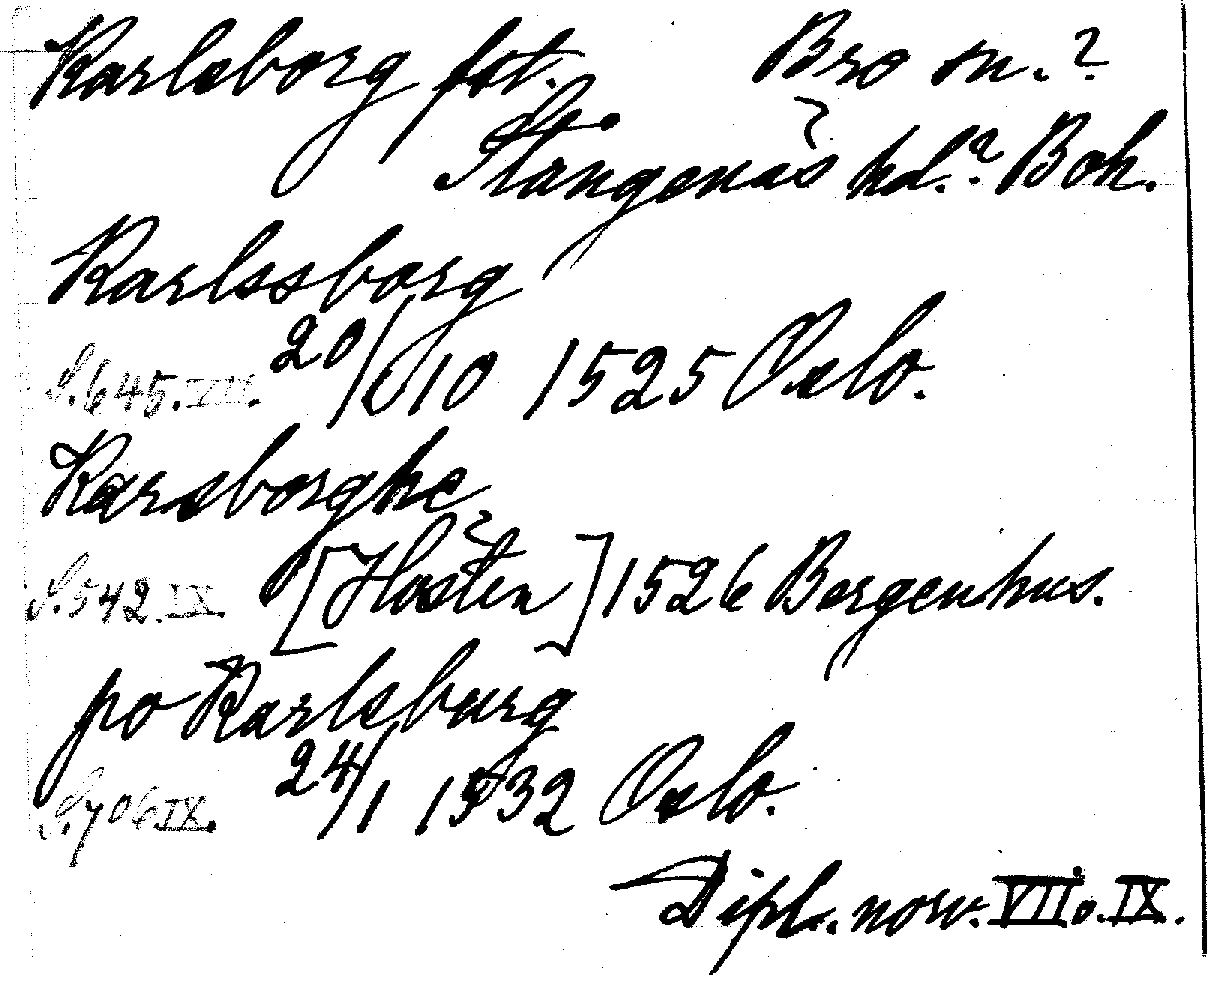 Karlsborg fst. Bro sn.?
Stångenäs hd.? Boh.
Karlssborg
S. 645. VII. 20/10 1525 Oslo.
Karsborghe
S. 542 IX. [Hösten] 1526 Bergenhus.
po Karlsburg
S. 706 IX. 24/1 1532 Oslo.
Dipl. norv. VII o. IX.